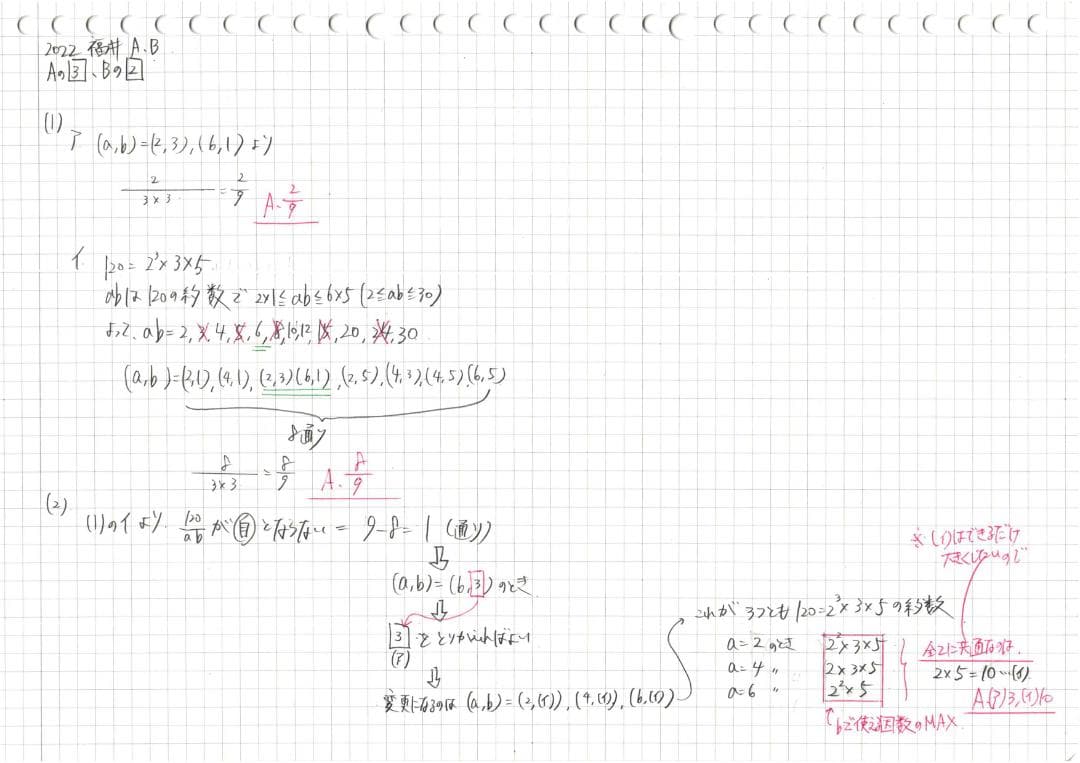 2022 福井 A、B
Aの3、Bの2
(1)
ア (a,b)=(2,3),(6,1)より
2/(3×3) = 2/9 A. 2/9
イ 120=2³×3×5
abは120の約数で 2×1≦ab≦6×5 (2≦ab≦30)
よって、ab=2,3,4,5,6,8,10,12,15,20,24,30
(a,b)=(2,1),(4,1),(2,3)(6,1),(2,5),(4,3),(4,5),(6,5)
8通り
8/(3×3) = 8/9 A. 8/9
(2)
(1)のイより 120/ab が自とならない = 9-8=1 (通り)
⇩
(a,b)=(6,3)のとき
⇩
3をとりかえればよい
(ア)
⇩
変更になるのは (a,b)=(2,(イ)),(4,(イ)),(6,(イ))
これが3つとも120=2³×3×5の約数
a=2のとき 2²×3×5
a=4 〃 2×3×5
a=6 〃 2²×5
↑bで使える因数のMAX
※(イ)はできるだけ
大きくしたいので
全てに共通なのは、
2×5=10…(イ)
A.(ア)3,(イ)10